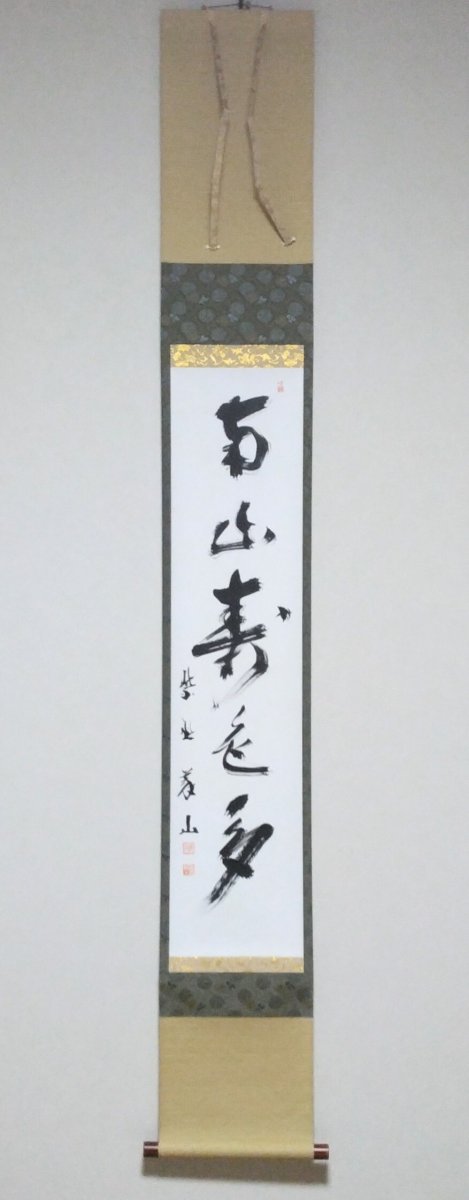 南山寿色多
紫野 山